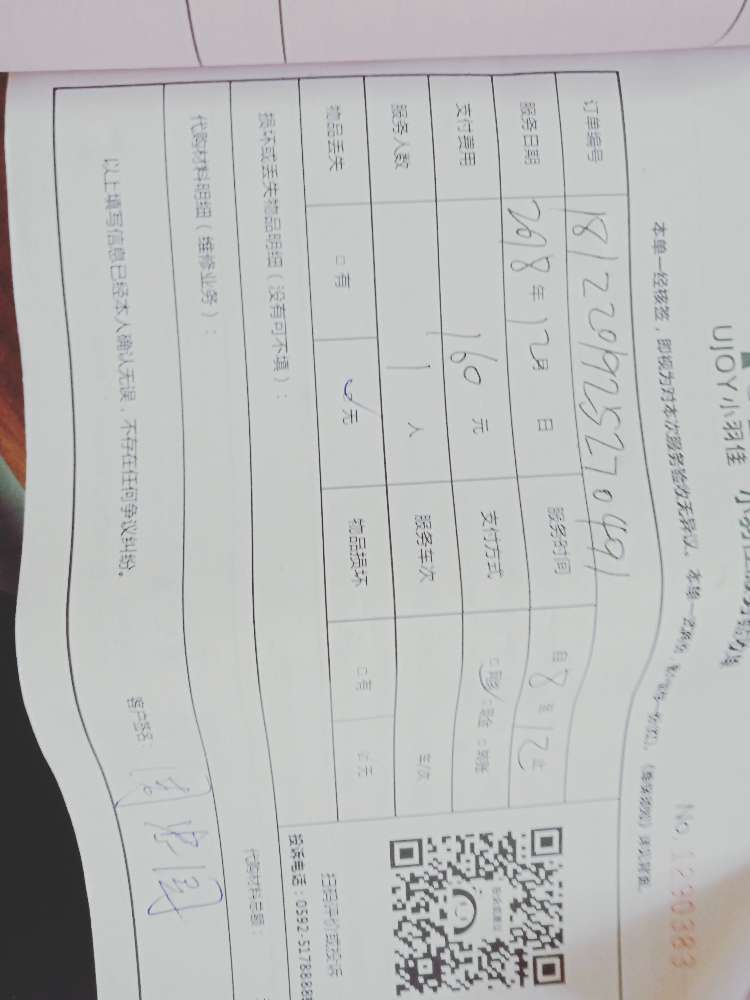 UJOY小羽佳
本单一经核签，即视为对本次服务验收无异议。
No. 1230383
订单编号 181220192527049
服务日期 2018年12月 日 服务时间 自8至12止
支付费用 160元 支付方式
服务人数 1人 服务车次 车次
物品丢失 □有 ✓无 物品损坏 □有 ☑无
损坏或丢失物品明细（没有可不填）：
代购材料明细（维修业务）： 代购材料总额：
以上填写信息已经本人确认无误，不存在任何争议纠纷。
客户签名：
扫码评价或投诉
投诉电话：0592-5178888